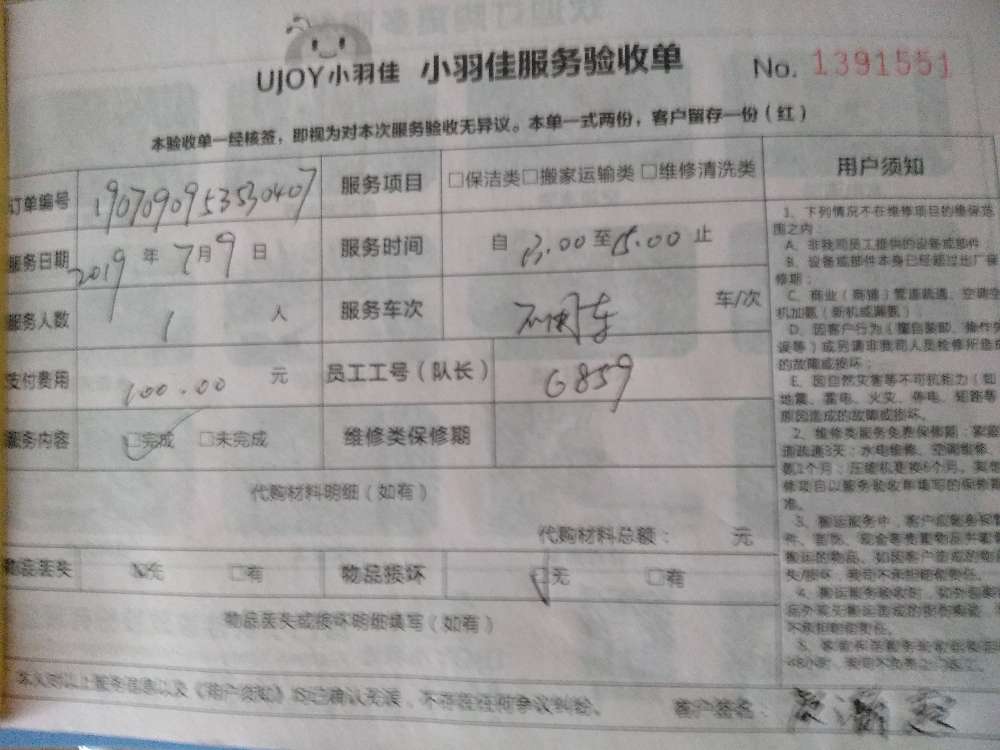 UJOY小羽佳 小羽佳服务验收单 No. 1391551
本验收单一经核签，即视为对本次服务验收无异议。本单一式两份，客户留存一份（红）
订单编号 1907090953530407 服务项目 □保洁类□搬家运输类 □维修清洗类
服务日期 2019年7月9日 服务时间 自13.00至15.00止
服务人数 1 人 服务车次 不用车 车/次
支付费用 100.00 元 员工工号（队长） 6859
服务内容 □完成 □未完成 维修类保修期
代购材料明细（如有）
代购材料总额： 元
物品丢失 无 □有 物品损坏 □无 □有
物品丢失或损坏明细填写（如有）
本人对以上服务信息以及《用户须知》均已确认无误，不存在任何争议纠纷。 客户签名：
用户须知
1、下列情况不在维修项目的维保范
围之内
A、非我司员工提供的设备或部件
B、设备或部件本身已经超过出厂保
修期；
C、商业（商铺）管道疏通、空调空
机加氨（新机或漏氨）
D、因客户行为（擅自装卸、操作
误等）或另请非我司人员检修所造成
的故障或损坏；
E、因自然灾害等不可抗拒力（如
地震、雷电、火灾、停电、短路等
原因造成的故障或损坏。
2、维修类服务免费保修期：家庭
道疏通3天；水电维修、空调维修、
氨1个月；压缩机更换6个月。
修项目以服务验收单填写的保修
准。
3、搬运服务中，客户应